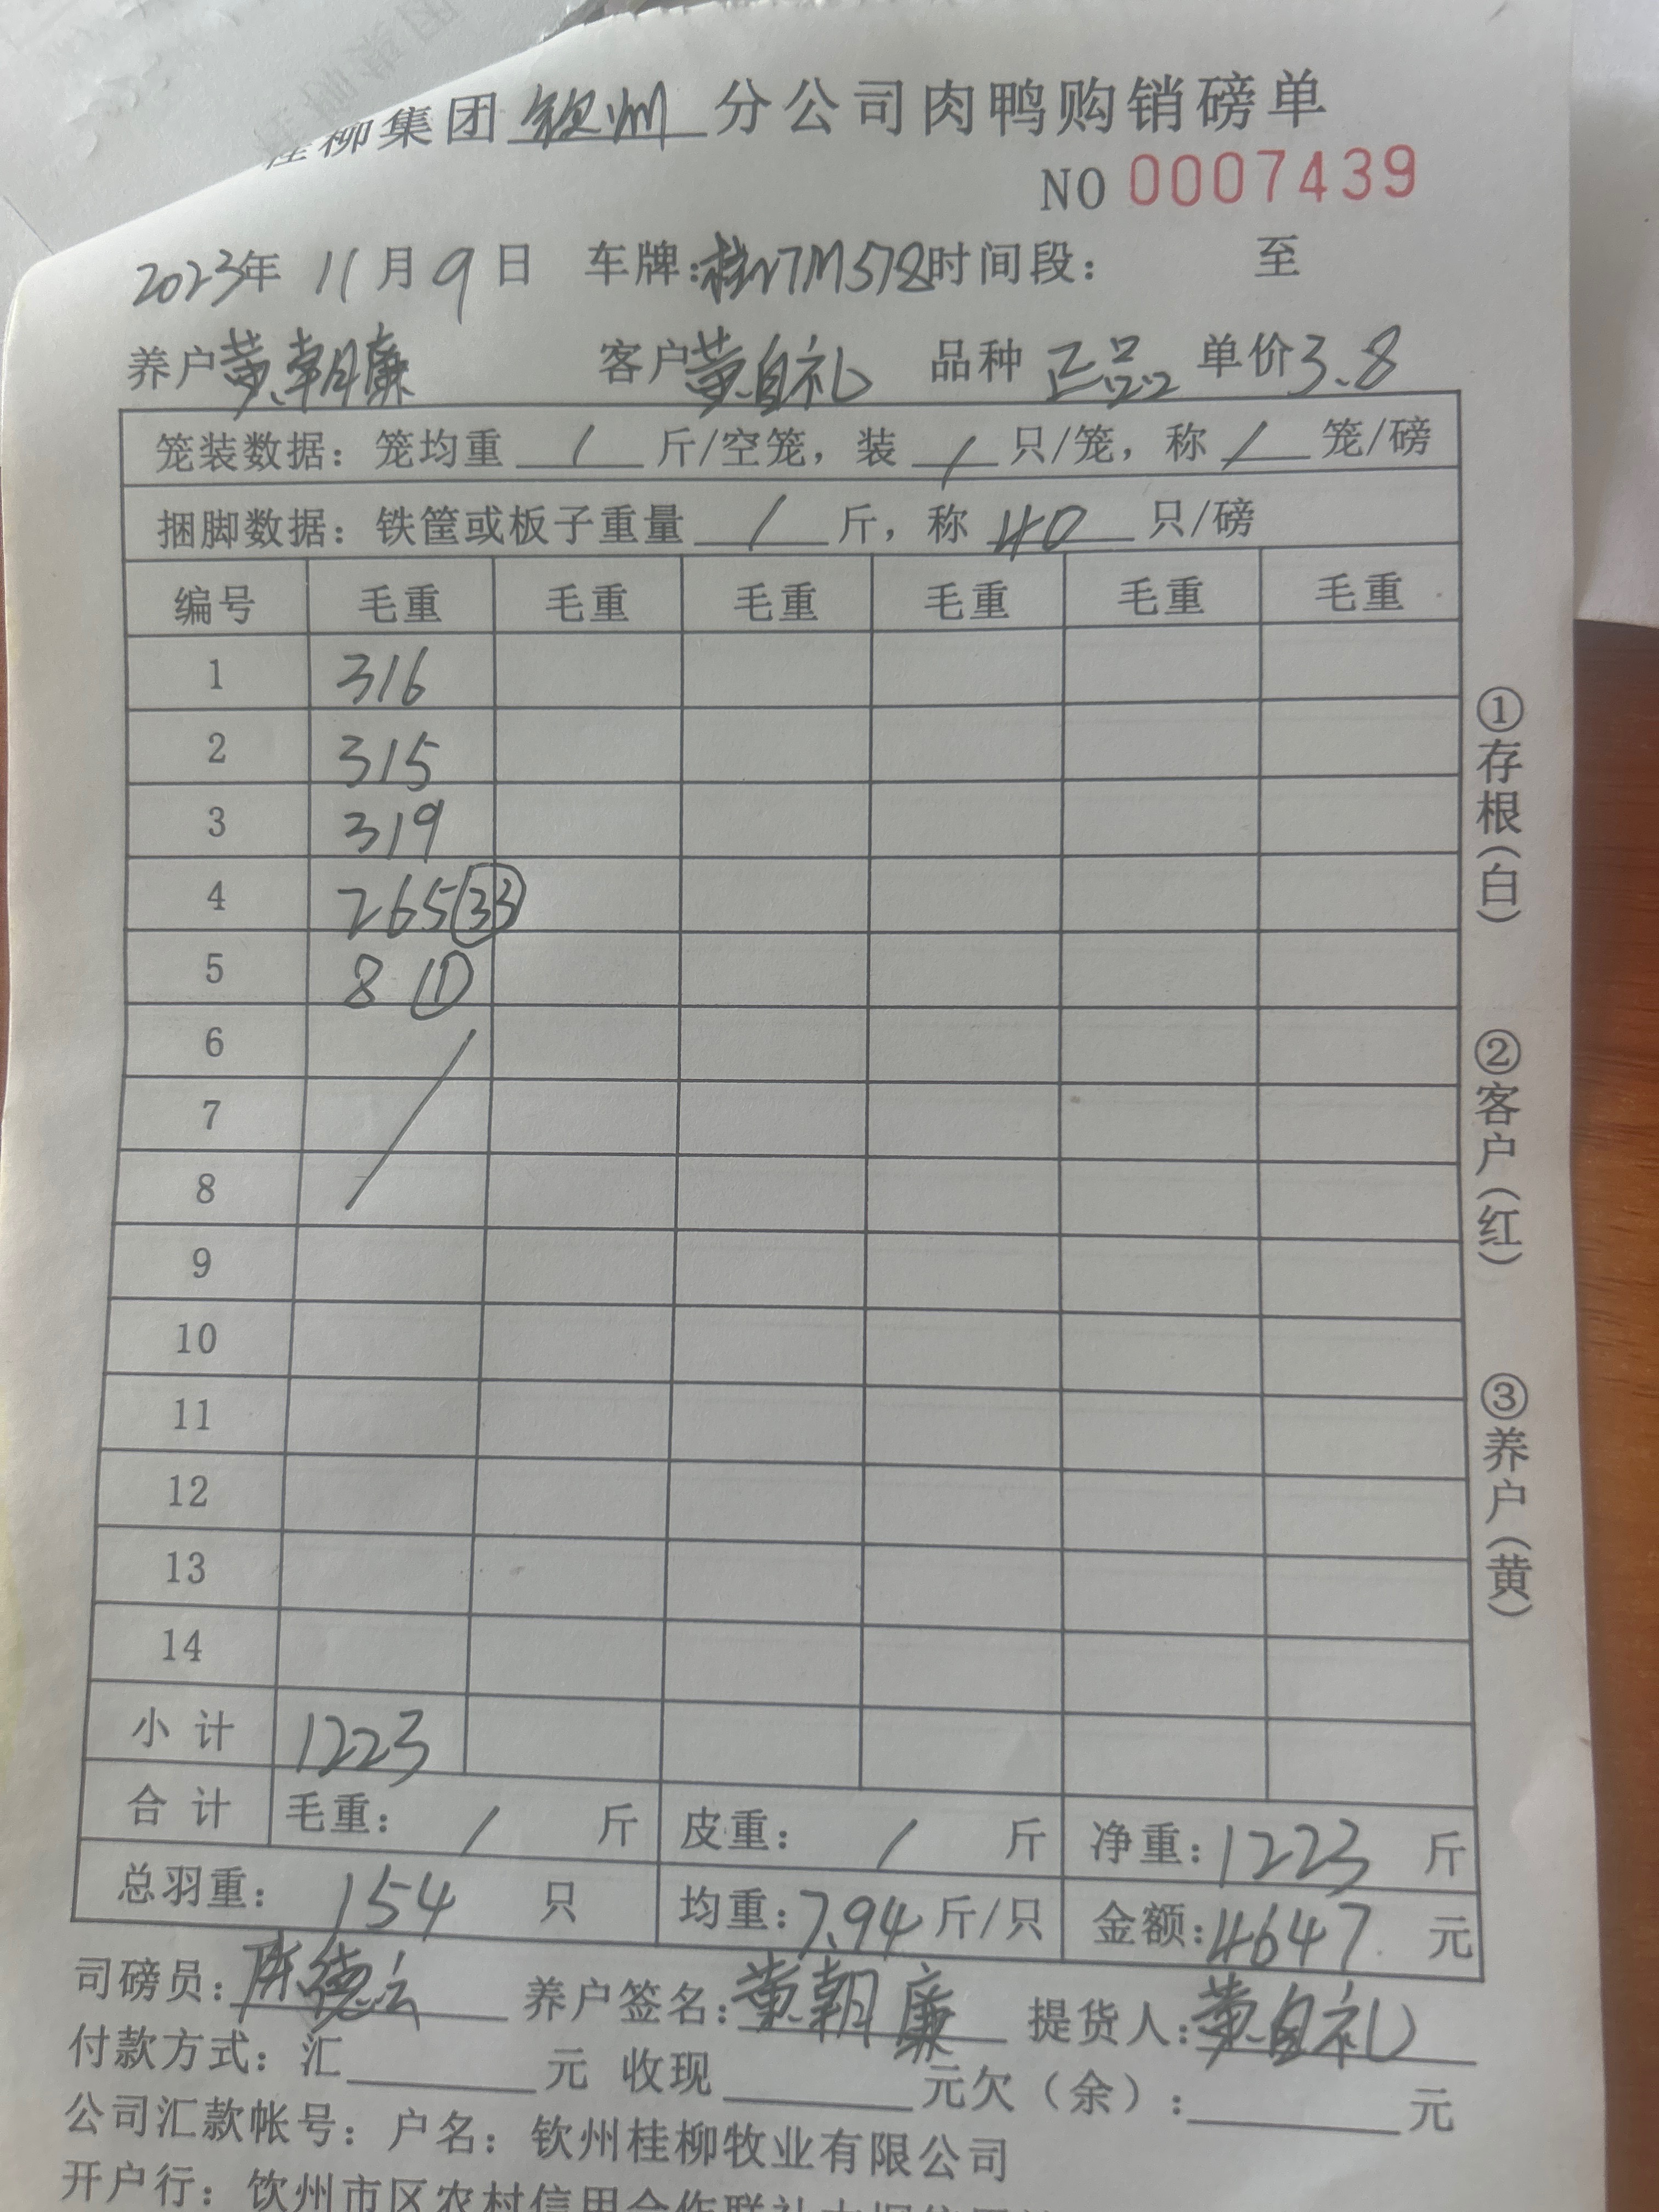 桂柳集团 钦州 分公司肉鸭购销磅单
NO 0007439
2023年 11月 9日 车牌:桂N7M578 时间段: 至
养户 黄朝廉 客户 黄自礼 品种 正品 单价 3.8
笼装数据: 笼均重 / 斤/空笼, 装 / 只/笼, 称 / 笼/磅
捆脚数据: 铁筐或板子重量 / 斤, 称 40 只/磅
编号 毛重 毛重 毛重 毛重 毛重 毛重
1 316
2 315
3 319
4 265 ㉝
5 8 ①
6
7
8
9
10
11
12
13
14
小计 1223
合计 毛重: / 斤 皮重: / 斤 净重: 1223 斤
总羽重: 154 只 均重: 7.94 斤/只 金额: 4647 元
司磅员: 德云 养户签名: 黄朝廉 提货人: 黄自礼
付款方式: 汇 元 收现 元欠(余): 元
公司汇款帐号: 户名: 钦州桂柳牧业有限公司
开户行: 钦州市区农村信用合作联社
①存根(白)
②客户(红)
③养户(黄)